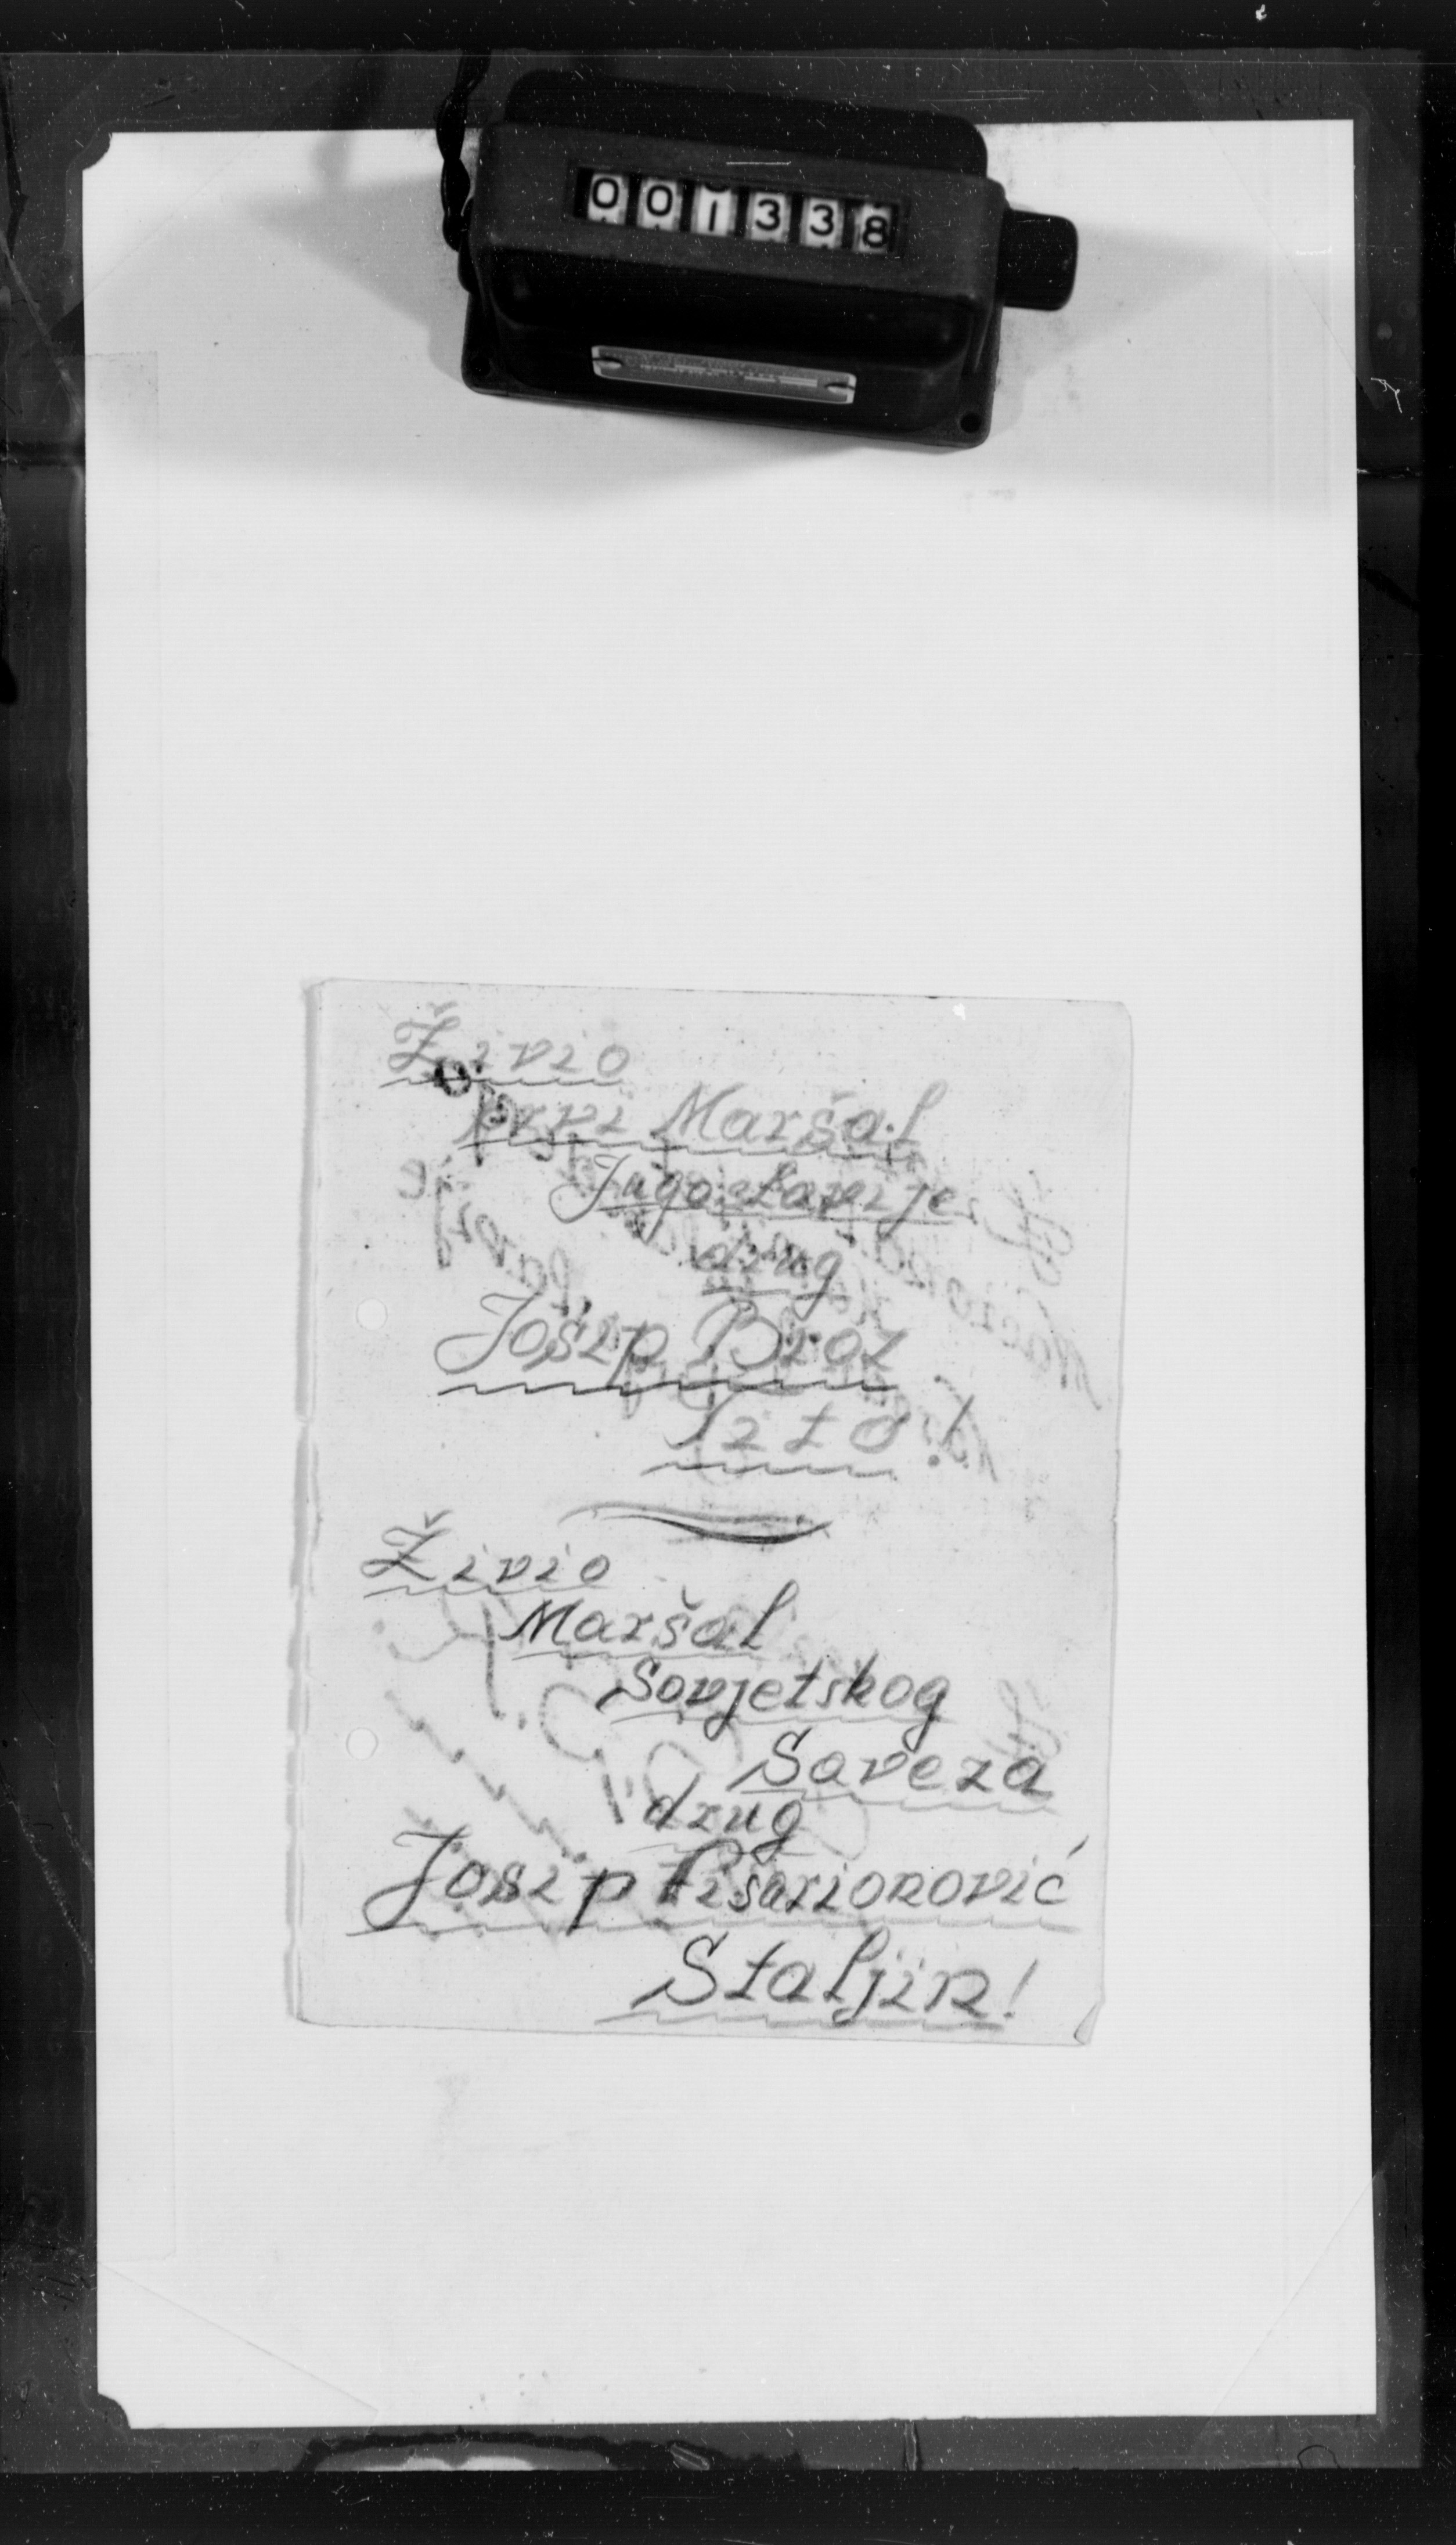 001338
Živio
prvi Maršal
Jugoslavije
drug
Josip Broz
Tito!
Živio
Maršal
Sovjetskog
Saveza
drug
Josip Visarionović
Staljin!